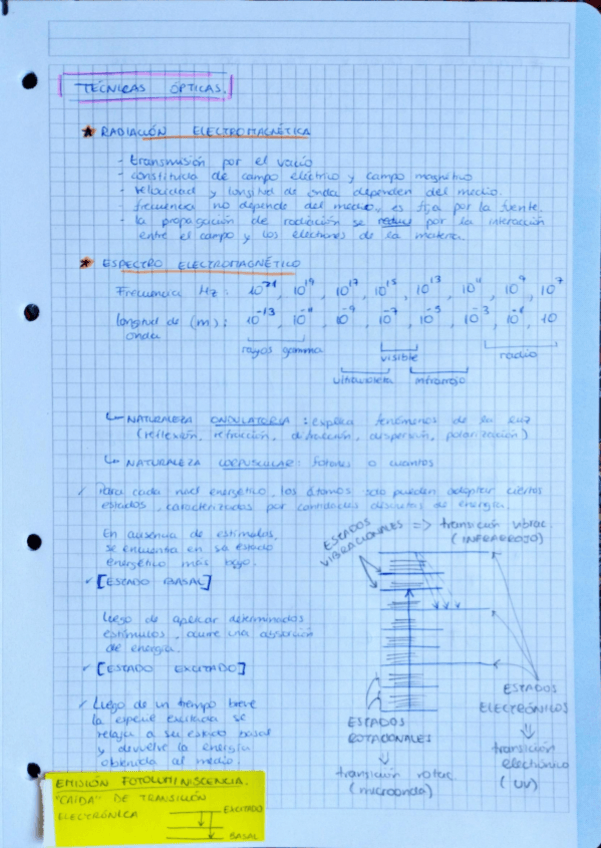 TÉCNICAS ÓPTICAS.
★ RADIACIÓN ELECTROMAGNÉTICA
- transmisión por el vacío
- constituida de campo eléctrico y campo magnético
- velocidad y longitud de onda dependen del medio.
- frecuencia no depende del medio, es fija por la fuente.
- la propagación de radiación se reduce por la interacción
entre el campo y los electrones de la materia.
★ ESPECTRO ELECTROMAGNÉTICO
Frecuencia Hz : 10^21, 10^19, 10^17, 10^15, 10^13, 10^11, 10^9, 10^7
longitud de (m) : 10^-13, 10^-11, 10^-9, 10^-7, 10^-5, 10^-3, 10^-1, 10
onda
rayos gamma
visible
radio
ultravioleta
infrarrojo
NATURALEZA ONDULATORIA : explica fenómenos de la luz
(reflexión, refracción, difracción, dispersión, polarización)
NATURALEZA CORPUSCULAR: fotones o cuantos
✓ Para cada nivel energético, los átomos solo pueden adoptar ciertos
estados, caracterizados por cantidades discretas de energía.
ESTADOS
VIBRACIONALES => transición vibrac.
(INFRARROJO)
En ausencia de estímulos,
se encuentra en su estado
energético más bajo.
✓ [ESTADO BASAL]
Luego de aplicar determinados
estímulos, ocurre una absorción
de energía.
✓ [ESTADO EXCITADO]
✓ Luego de un tiempo breve
la especie excitada se
relaja a su estado basal
y devuelve la energía
obtenida al medio.
ESTADOS
ROTACIONALES
⇓
transición rotac.
(microonda)
ESTADOS
ELECTRÓNICOS
⇓
transición
electrónica
(UV)
EMISIÓN FOTOLUMINISCENCIA.
"CAIDA" DE TRANSICIÓN
ELECTRÓNICA
EXCITADO
BASAL